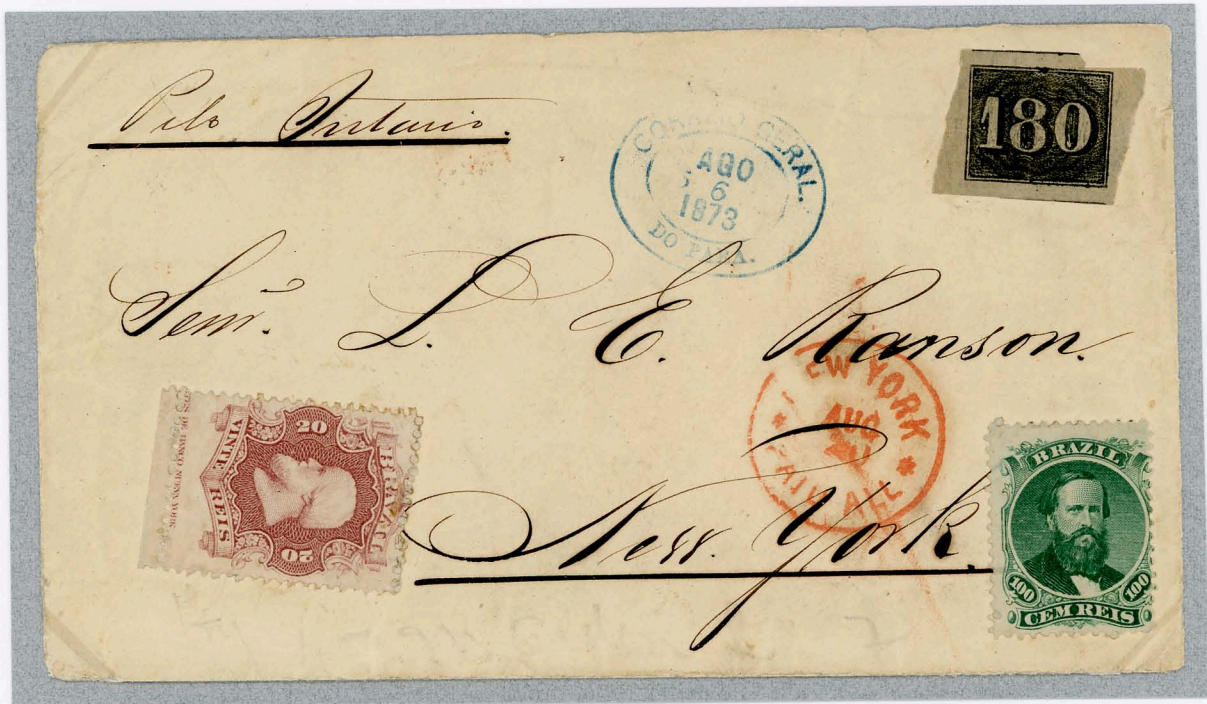 Pelo Ontario.
180
CORREIO GERAL.
AGO
6
1873
DO PARÁ.
Senr. L. E. Ranson.
NEW YORK
AUG
PAID ALL
New York.
BRAZIL
20
20
VINTE REIS
BRAZIL
100
100
CEM REIS